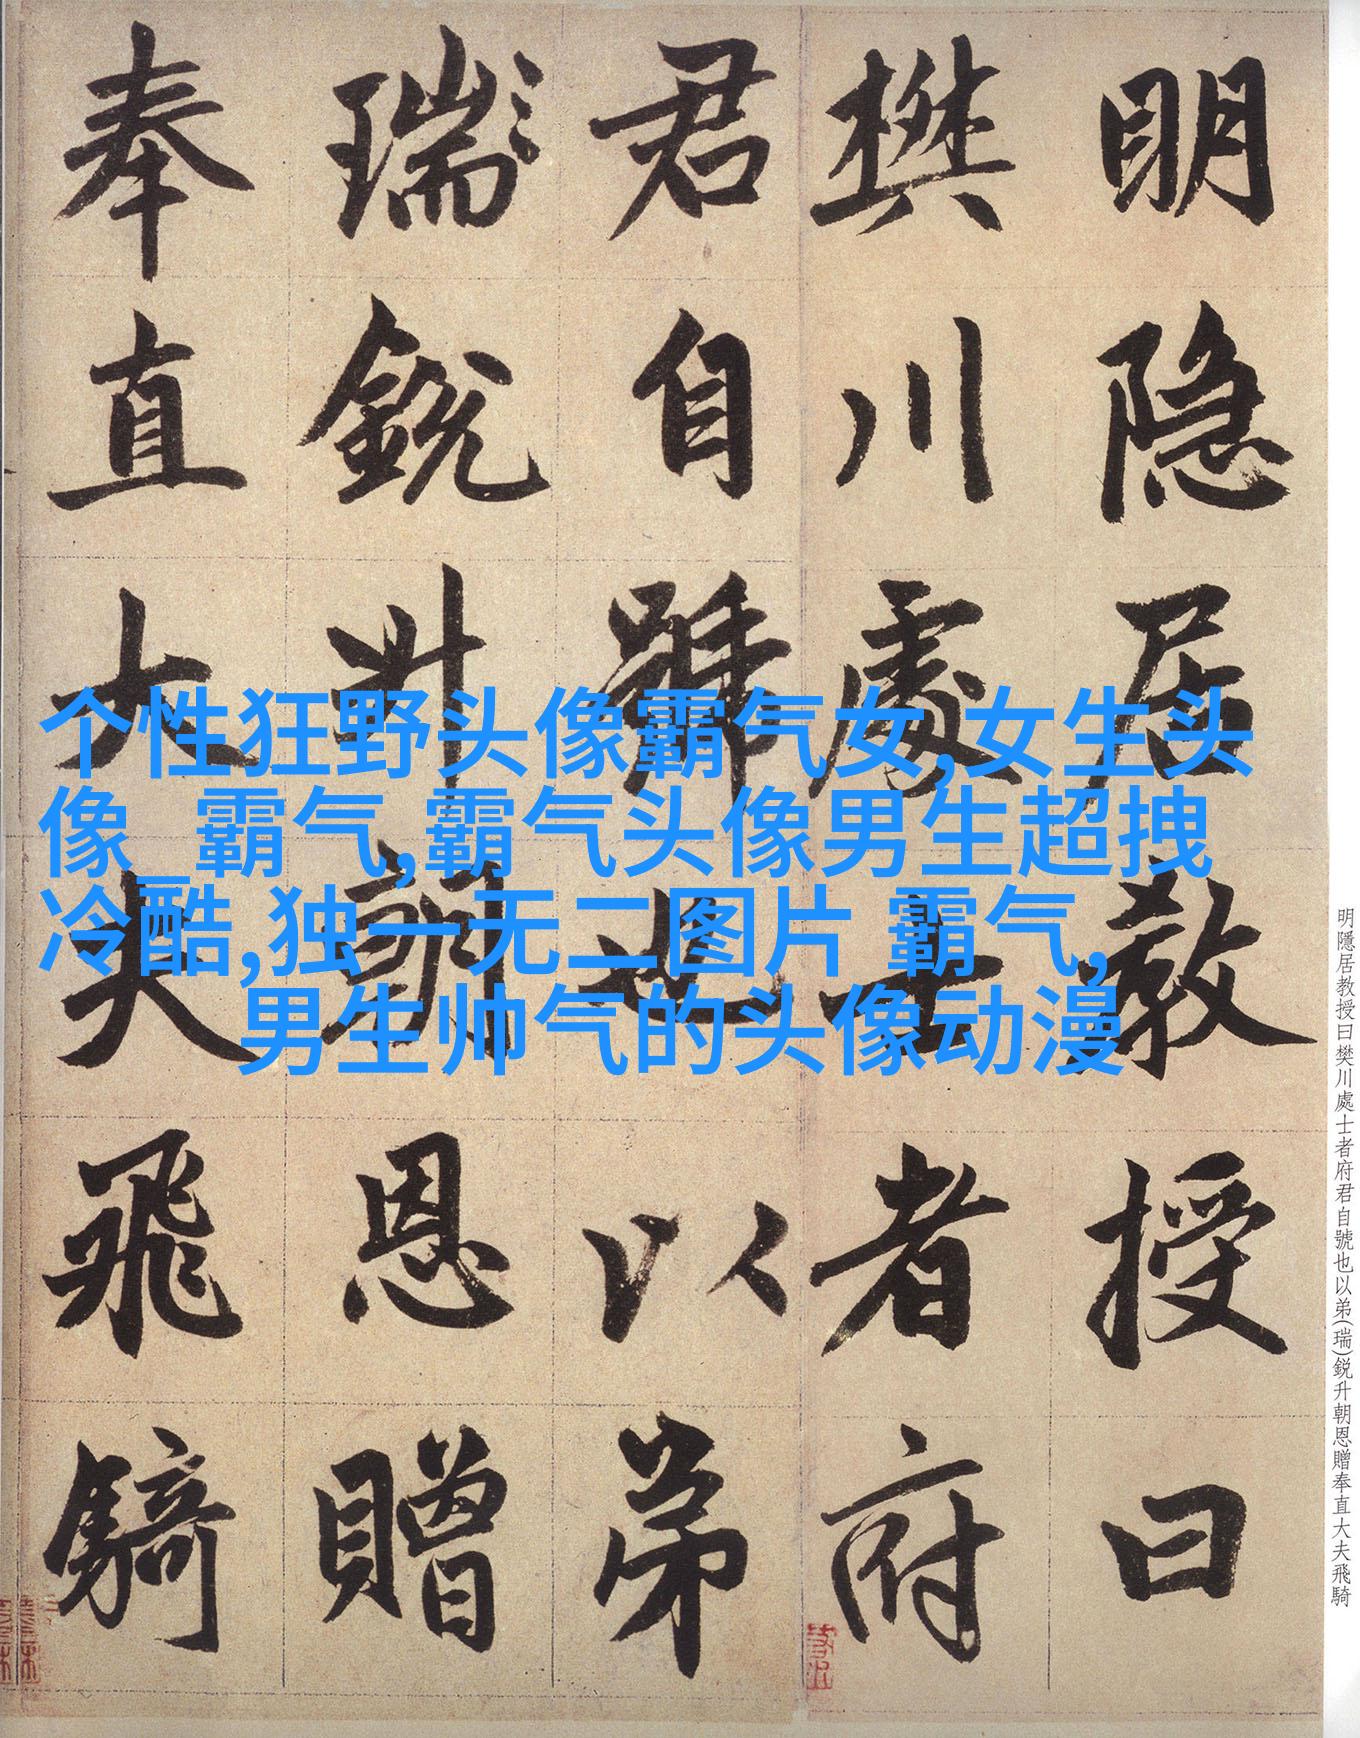 明隐居教授曰
樊川處士者府
君自號也以弟
瑞銳升朝恩贈
奉直大夫飛騎
个性狂野头像霸气女,女生头
像 霸气,霸气头像男生超拽
冷酷,独一无二图片 霸气,
男生帅气的头像动漫
明隱居教授曰樊川處士者府君自號也以弟(瑞)鋭升朝恩贈奉直大夫飛騎